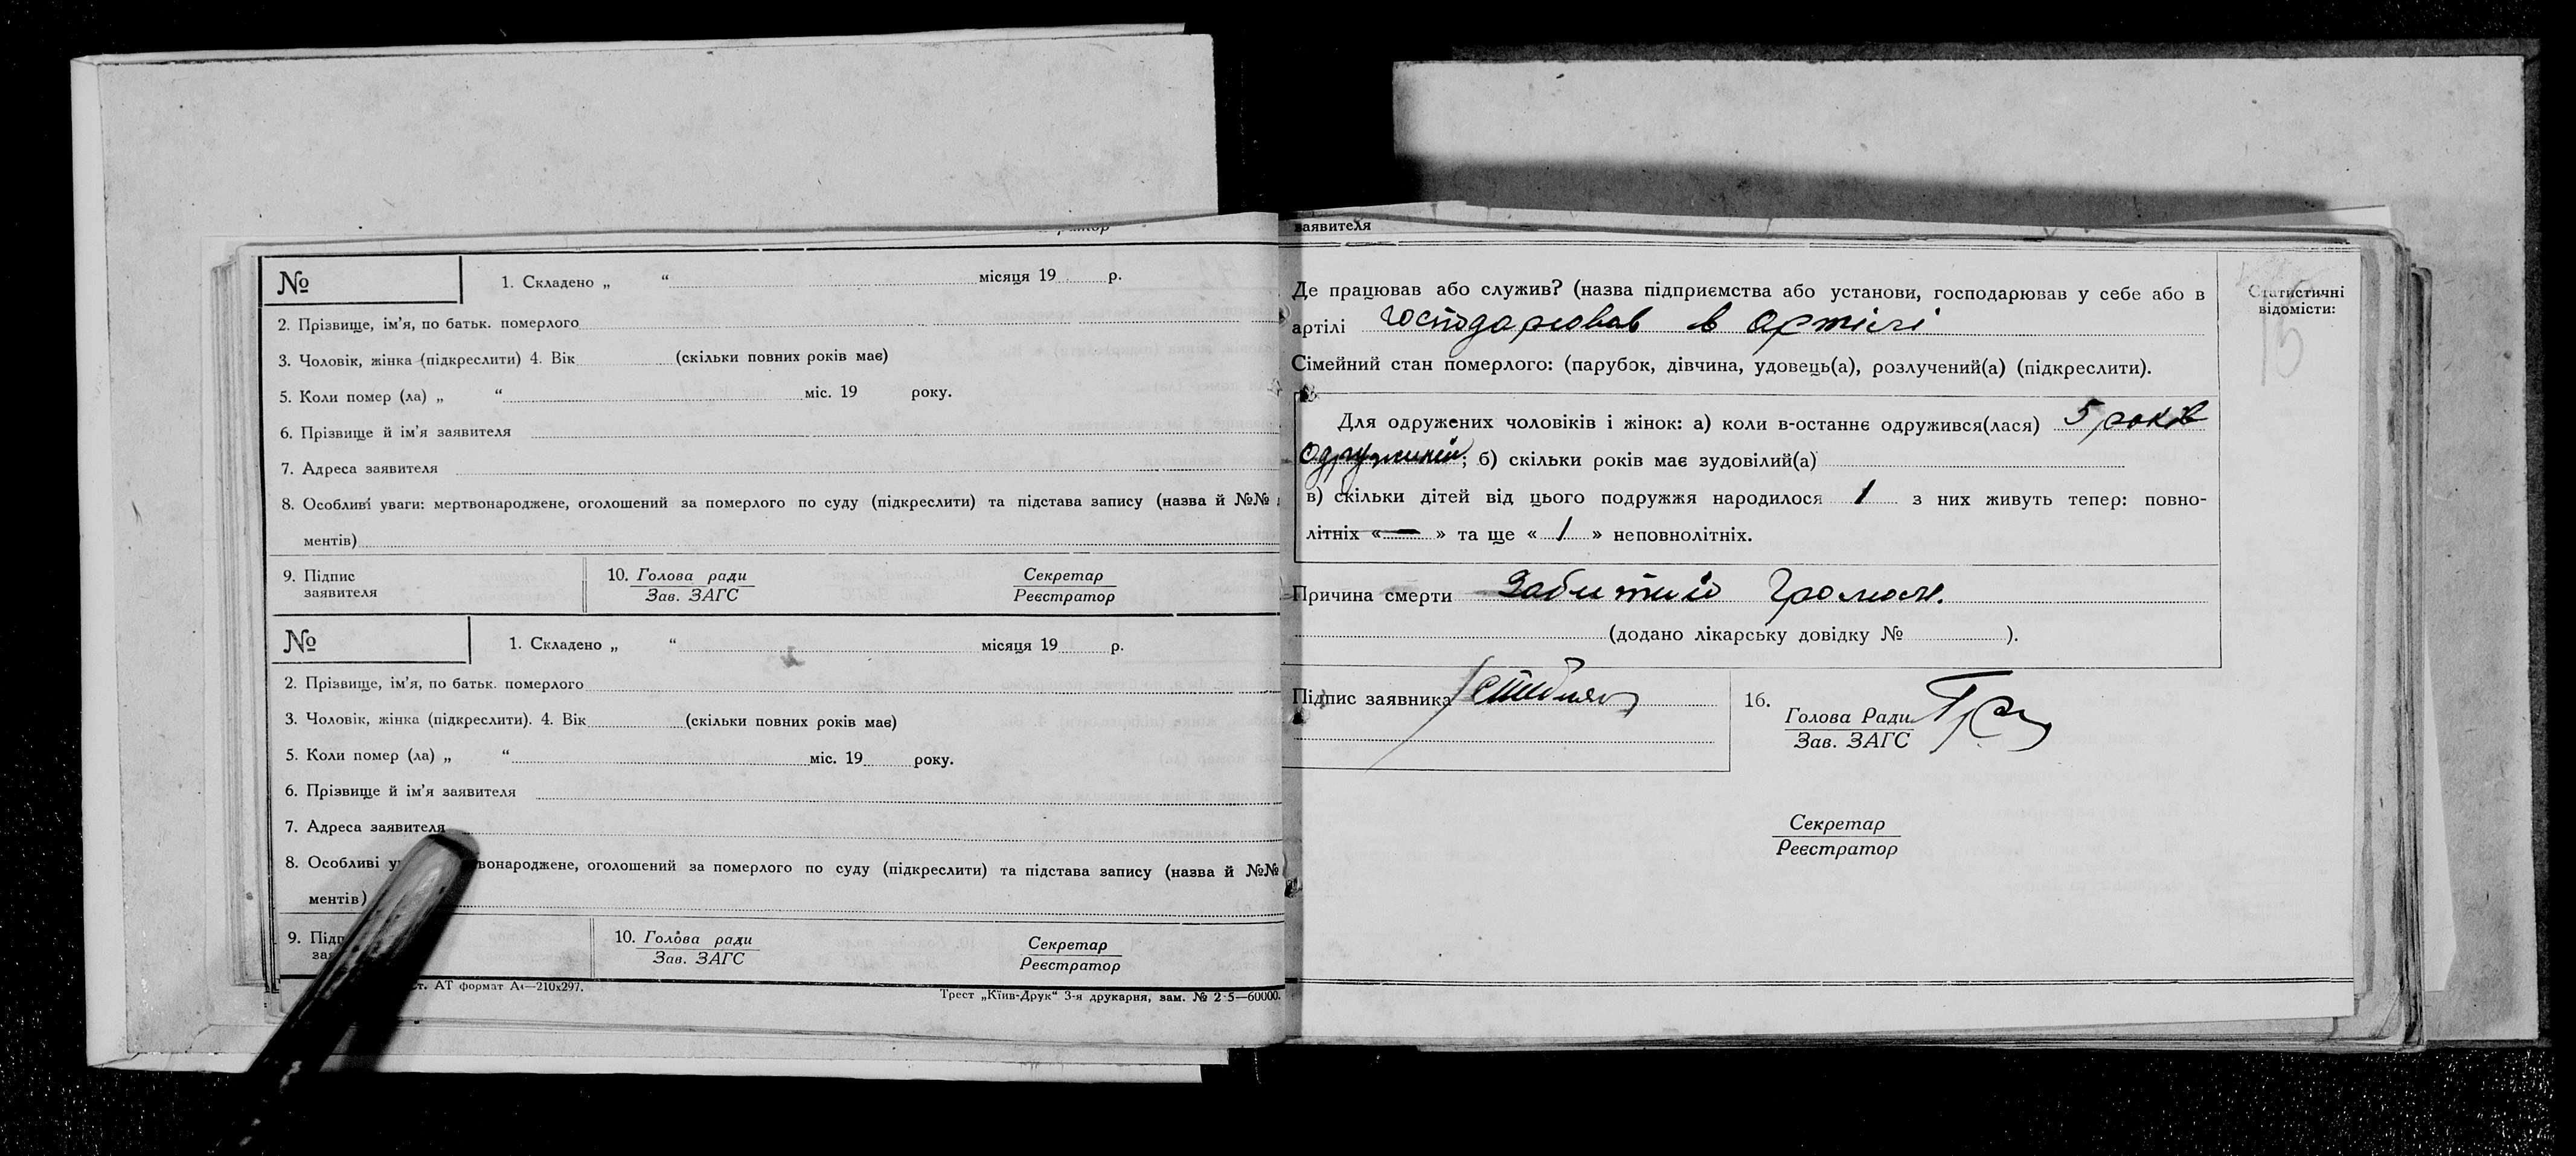 №
1. Складено „ “ місяця 19 р.
2. Прізвище, ім’я, по батьк. померлого
3. Чоловік, жінка (підкреслити) 4. Вік (скільки повних років має)
5. Коли помер (ла) „ “ міс. 19 року.
6. Прізвище й ім’я заявителя
7. Адреса заявителя
8. Особливі уваги: мертвонароджене, оголошений за померлого по суду (підкреслити) та підстава запису (назва й №№
ментів)
9. Підпис
заявителя
10. Голова ради
Зав. ЗАГС
Секретар
Реєстратор
№
1. Складено „ “ місяця 19 р.
2. Прізвище, ім’я, по батьк. померлого
3. Чоловік, жінка (підкреслити). 4. Вік (скільки повних років має)
5. Коли помер (ла) „ “ міс. 19 року.
6. Прізвище й ім’я заявителя
7. Адреса заявителя
8. Особливі вонароджене, оголошений за померлого по суду (підкреслити) та підстава запису (назва й №№
ментів)
9. Підп
за
10. Голова ради
Зав. ЗАГС
Секретар
Реєстратор
ст. АТ формат А4—210х297.
Трест „Київ-Друк“ 3-я друкарня, зам. № 2-5—60000.
заявителя
Де працював або служив? (назва підприємства або установи, господарював у себе або в
артілі господарював в артілі
Сімейний стан померлого: (парубок, дівчина, удовець(а), розлучений(а) (підкреслити).
Для одружених чоловіків і жінок: а) коли в-останнє одружився(лася) 5 років
одружиний; б) скільки років має зудовілий(а)
в) скільки дітей від цього подружжя народилося 1 з них живуть тепер: повно-
літніх «—» та ще «1» неповнолітніх.
Причина смерти Забитий Громом.
(додано лікарську довідку № ).
Підпис заявника
16.
Голова Ради
Зав. ЗАГС
Секретар
Реєстратор
Статистичні
відомісти:
15